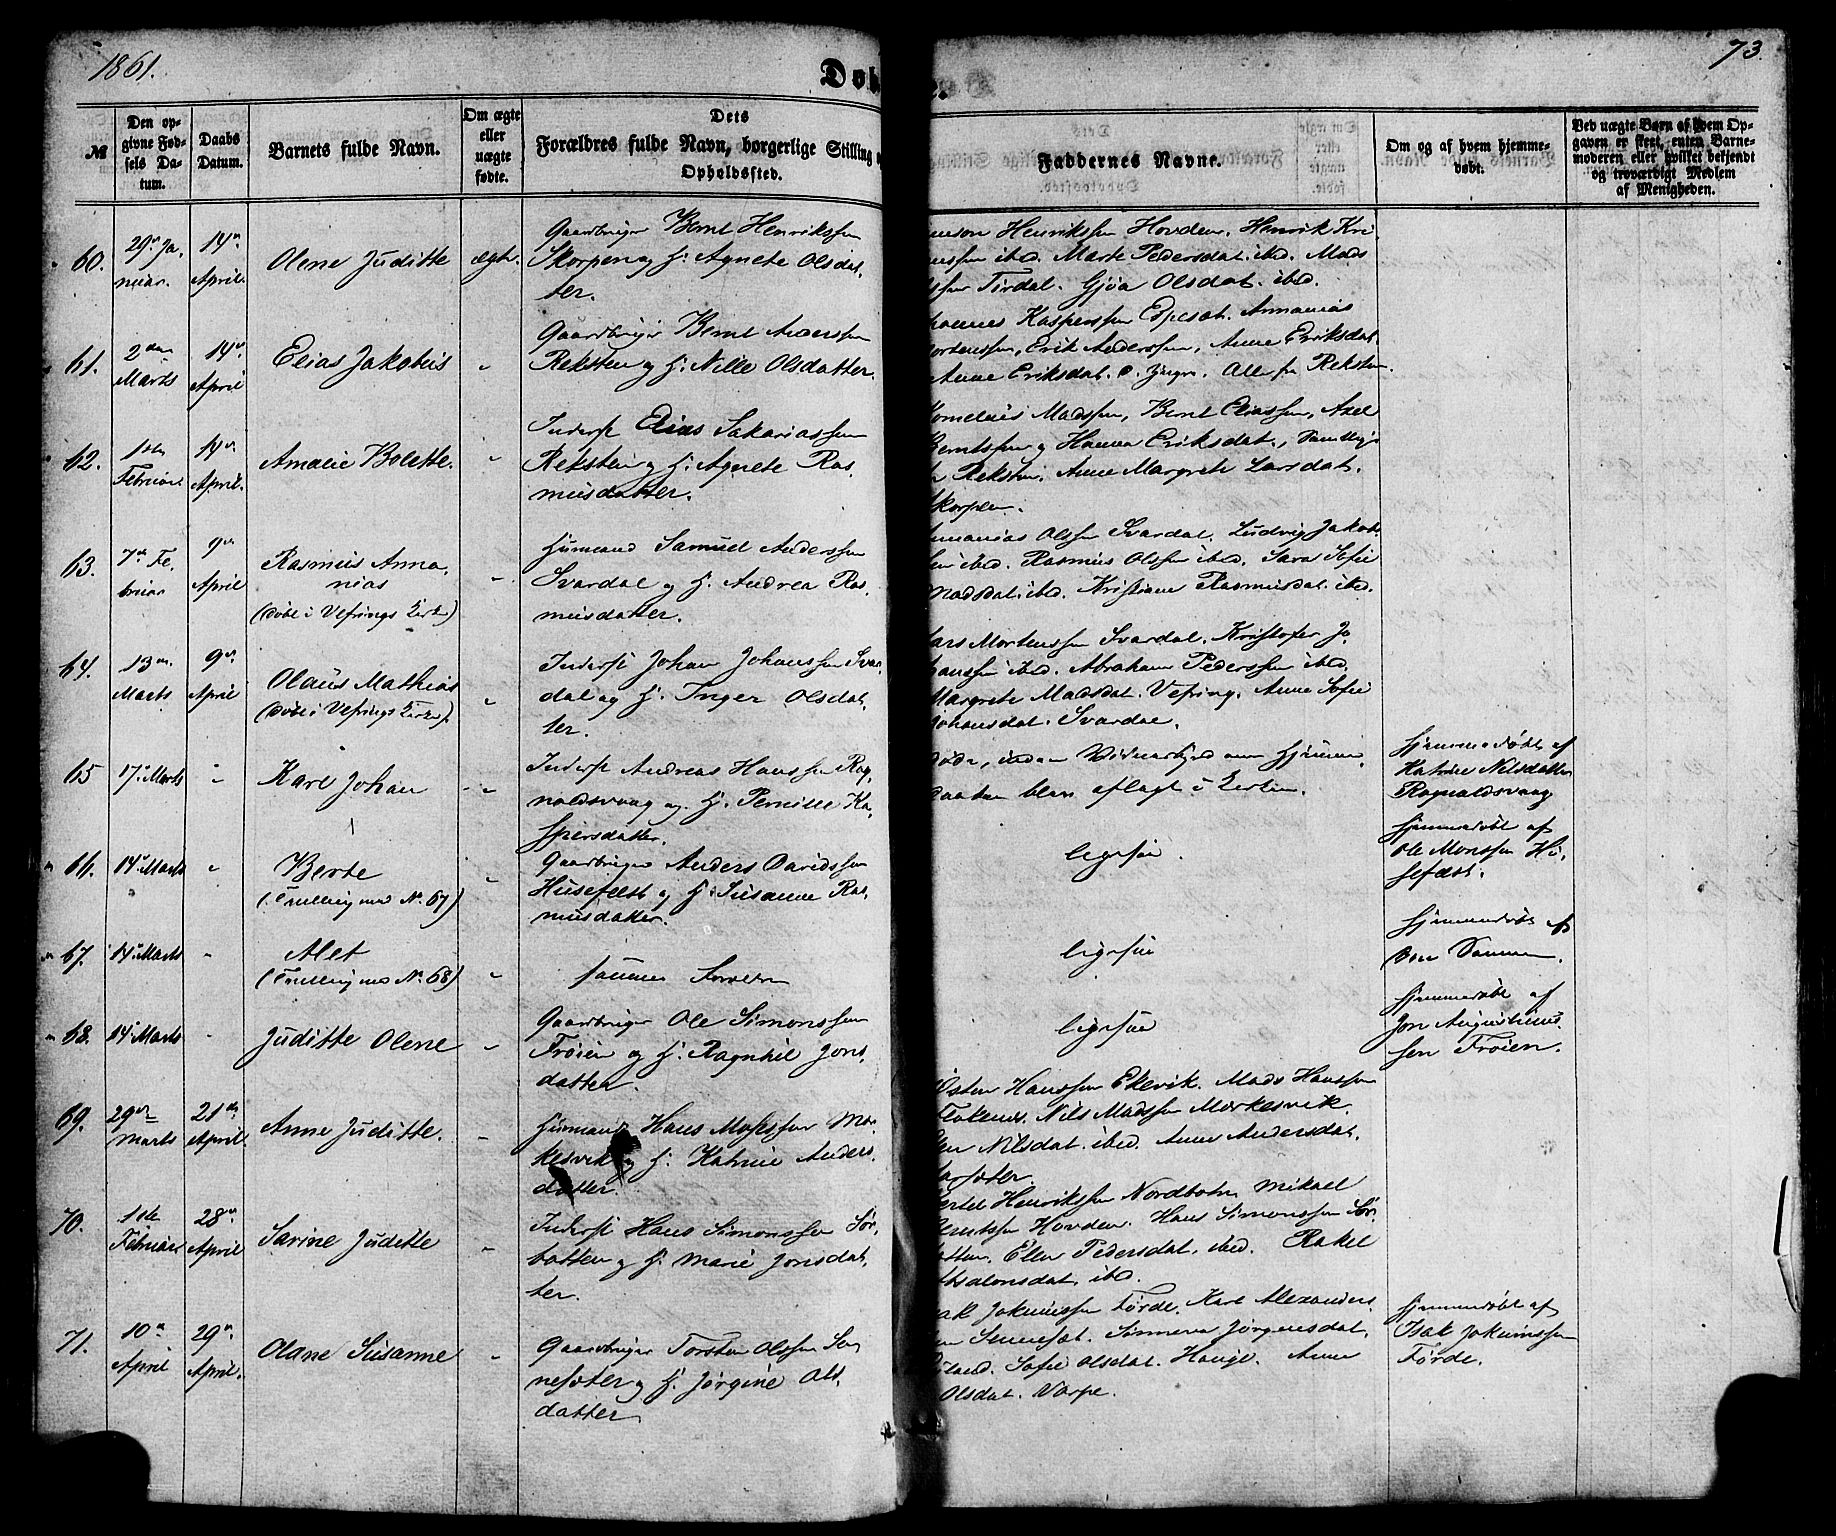 1861.
73.
Døb
№
Den op-
givne Fød-
sels Da-
tum.
Daabs
Datum.
Barnets fulde Navn.
Om ægte
eller
uægte
fødte.
Dets
Forældres fulde Navn, borgerlige Stilling
Opholdssted.
Faddernes Navne.
Om og af hvem hjemme-
døbt.
Ved uægte Børn af hvem Op-
gaven er skeet, enten Barne-
moderen eller hvilket bekjendt
og troværdigt Medlem
af Menigheden.
60.
29de Ja-
nuar.
14de
April.
Olene Juditte
ægte.
Gaardbruger Bernt Henrikssen
Skorpen og H. Agnete Olsdat-
ter.
Henrikssen Hovden. Henrik Kri
ssen ibid. Marte Pedersdat. ibid. Mads
Førdal. Gjøa Olsdat. ibid.
61.
2den
Marts
14de
April
Elias Jakobus
"
Gaardbruger Bernt Anderssen
Reksten og H. Nille Olsdatter.
Kasperssen Espeset. Annanias
ortenssen, Erik Anderssen, Anne Eriksdat.
Anne Eriksdat. d. yngre. Alle fra Reksten.
62.
1ste
Februar.
14de
April.
Amalie Bolette.
"
Inderst Elias Sakariassen
Reksten og H. Agnete Ras-
musdatter.
Kornelius Madssen, Bernt Eliassen, Axel
Berntssen og Hanna Eriksdat., samtlige
Reksten. Anne Margrete Larsdat.
Skorpen.
63.
7de Fe-
bruar
9de
April
Rasmus Anna-
nias
(døbt i Vefrings Kirke)
"
Husmand Samuel Anderssen
Svardal og H. Andrea Ras-
musdatter.
nanias Olssen Svardal. Ludvig Jakob-
sen ibid. Rasmus Olssen ibid. Sara Sofie
Madsdat. ibid. Kristiane Rasmusdat. ibid.
64.
13de
Marts
9de
April
Olaus Mathias
(døbt i Vefrings Kirke).
"
Inderst Johan Johanssen Svar-
dal og H. Inger Olsdat-
ter.
Lars Mortenssen Svardal. Kristofer Jo-
hanssen ibid. Abraham Pederssen ibid.
Margrete Madsdat. Vefring. Anne Sofie
Johansdat. Svardal.
65
17de Marts
"
Karl Johan
"
Inderst Andreas Hanssen Rag-
naldsvaag og H. Pernille Ka-
spersdatter.
døde, inden Vidnesbyrd om Hjemme-
daaben blev aflagt i Kirken.
Hjemmedøbt af
Katrine Nilsdatter
Ragnaldsvaag
66.
14de Marts
"
Berte
(Tvilling med No. 67)
"
Gaardbruger Anders Davidssen
Husefæst og H. Susanne Ras-
musdatter.
ligesaa.
Hjemmedøbt af
Ole Monssen Hu-
sefæst.
67.
14de Marts
"
Alet
(Tvilling med No. 68)
"
samme Forældre
ligesaa
Hjemmedøbt af
den Samme.
68.
14de Marts
"
Juditte Olene
"
Gaardbruger Ole Simonssen
Frøien og H. Ragnhil Jons-
datter.
ligesaa
Hjemmedøbt af
Jon Augustinus-
sen Frøien.
69.
29de
Marts
21de
April.
Anne Juditte.
"
Husmand Hans Mosessen Mar-
kesvik og H. Katrine Anders-
datter.
Østen Hanssen Ekevik. Mads Hanssen
Flokenes. Nils Madssen Markesvik.
Nilsdat. ibid. Anne Andersdat.
70.
1ste
Februar
28de
April
Sarine Juditte
"
Inderst Hans Simonssen Sør-
botten og H. Marie Jonsdat-
ter.
Bertel Henrikssen Nordbotn. Mikael
Berntssen Hovden. Hans Simonssen Sør-
botten. Ellen Pedersdat. ibid. Rakel
Absalonsdat. ibid.
71.
10de
April
29de
April.
Oline Susanne
"
Gaardbruger Torsten Olssen Sen-
nesæter og H. Jørgine Ols-
datter
Isak Jokumssen Førde. Karl Alexanders-
sen Sennesæt. Sønneva Jørgensdat.
Sofie Olsdat. Hauge. Anne
Olsdat. Varpe.
Hjemmedøbt af
Isak Jokumssen
Førde.